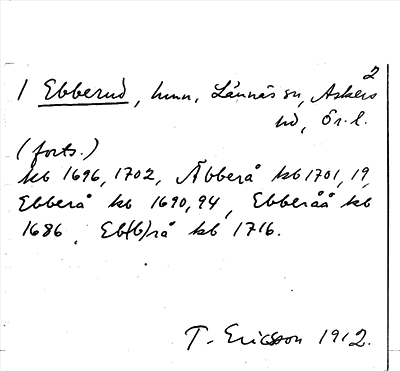 2
1 Ebberud, hmn, Lännäs sn, Askers
hd, Ör. l.
(forts.)
kb 1696, 1702, Äbberå kb 1701, 19,
Ebberå kb 1690, 94, Ebberåå kb
1686, Eb(b)rå kb 1716.
T. Ericsson 1912.